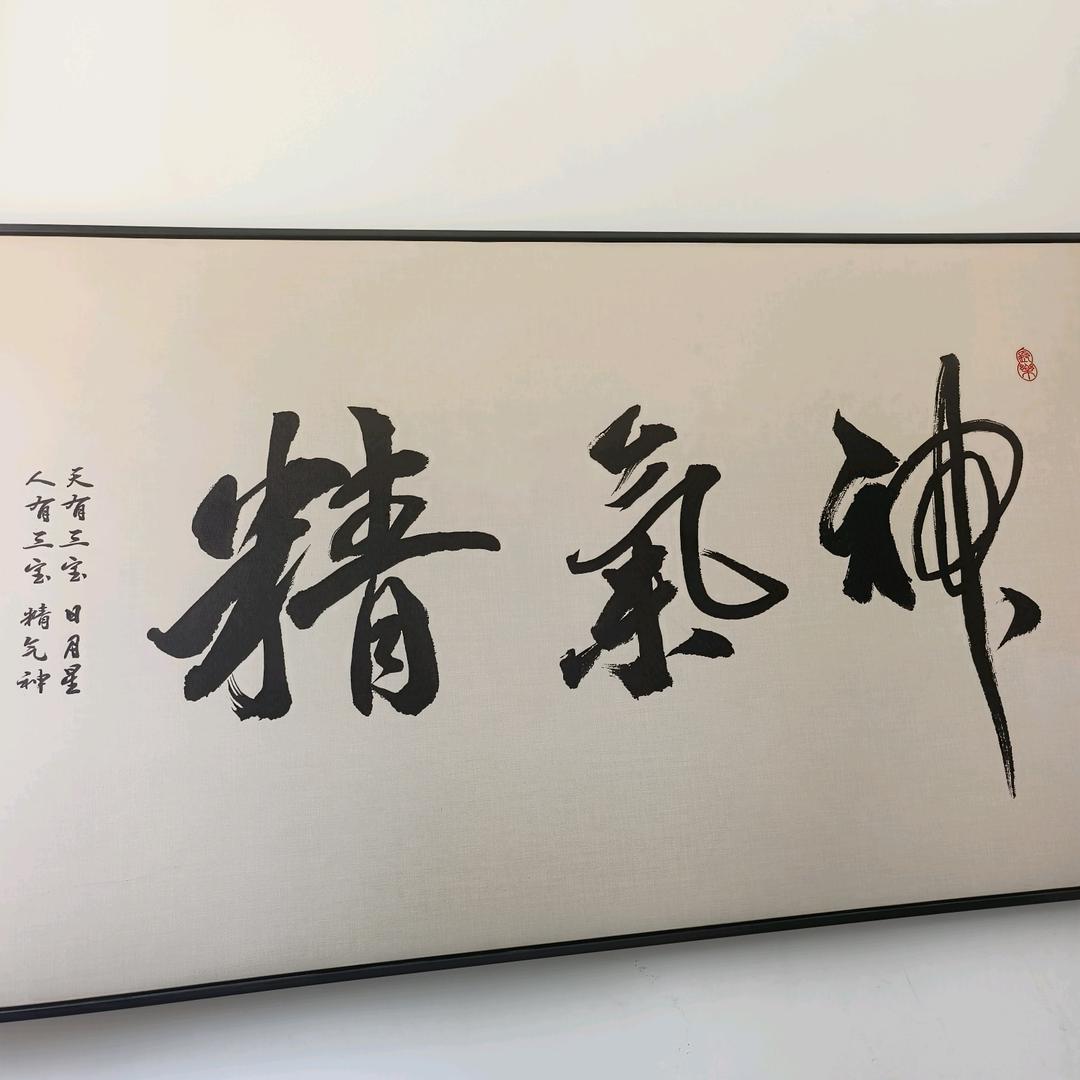 精氣神
天有三宝 日月星
人有三宝 精气神